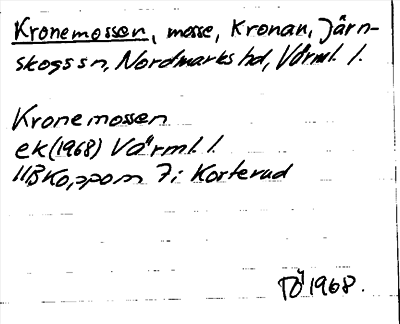 Kronemossen, mosse, Kronan, Järn-
skogs sn, Nordmarks hd, Värml. l.
Kronemossen
ek (1968) Värml. l.
11B Ko,    7i Korterud
1968.